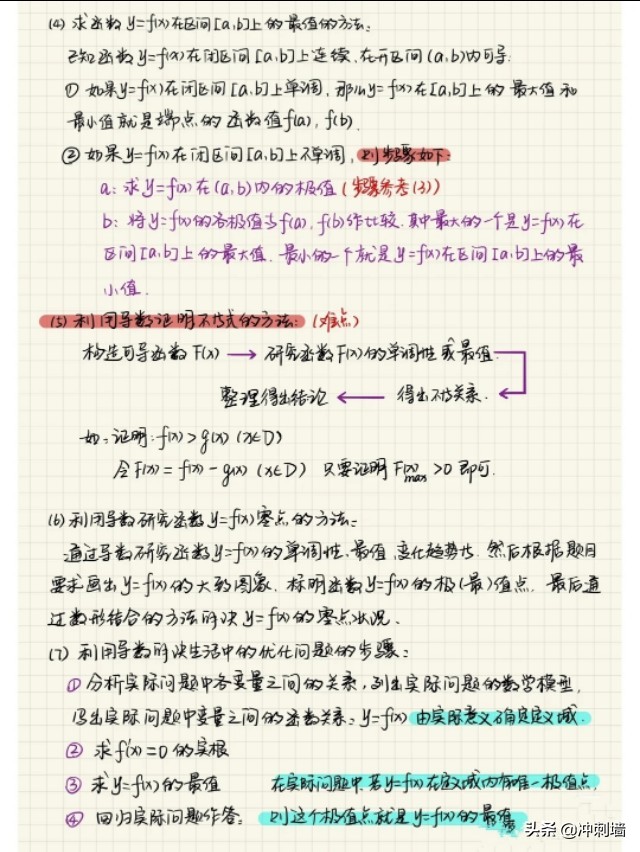 (4) 求函数 y=f(x)在区间[a,b]上的最值的方法:
已知函数 y=f(x)在闭区间[a,b]上连续,在开区间(a,b)内可导.
① 如果y=f(x)在闭区间[a,b]上单调,那么y=f(x)在[a,b]上的最大值和
最小值就是端点的函数值f(a),f(b).
② 如果y=f(x)在闭区间[a,b]上不单调,则步骤如下:
a: 求y=f(x)在(a,b)内的极值(步骤参考(3))
b: 将y=f(x)的各极值与f(a),f(b)作比较.其中最大的一个是y=f(x)在
区间[a,b]上的最大值.最小的一个就是y=f(x)在区间[a,b]上的最
小值.
(5) 利用导数证明不等式的方法:(难点)
构造可导函数 F(x) → 研究函数F(x)的单调性或最值
整理得出结论 ← 得出不等关系.
如:证明:f(x)>g(x) (x∈D)
令F(x)=f(x)-g(x) (x∈D) 只要证明 F(x)max>0即可.
(6) 利用导数研究函数y=f(x)零点的方法:
通过导数研究函数y=f(x)的单调性、最值、变化趋势等.然后根据题目
要求画出y=f(x)的大致图象.标明函数y=f(x)的极(最)值点.最后通
过数形结合的方法解决y=f(x)的零点状况.
(7) 利用导数解决生活中的优化问题的步骤:
① 分析实际问题中各变量之间的关系,列出实际问题的数学模型,
写出实际问题中变量之间的函数关系:y=f(x) 由实际意义确定定义域.
② 求f'(x)=0的实根
③ 求y=f(x)的最值 在实际问题中,若y=f(x)在定义域内有唯一极值点
④ 回归实际问题作答: 则这个极值点就是y=f(x)的最值
头条 @冲刺墙